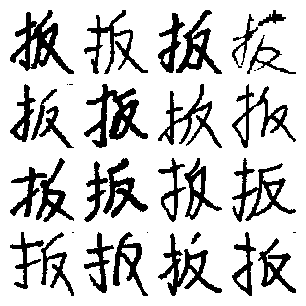 扳扳扳扳
扳扳扳扳
扳扳扳扳
扳扳扳扳